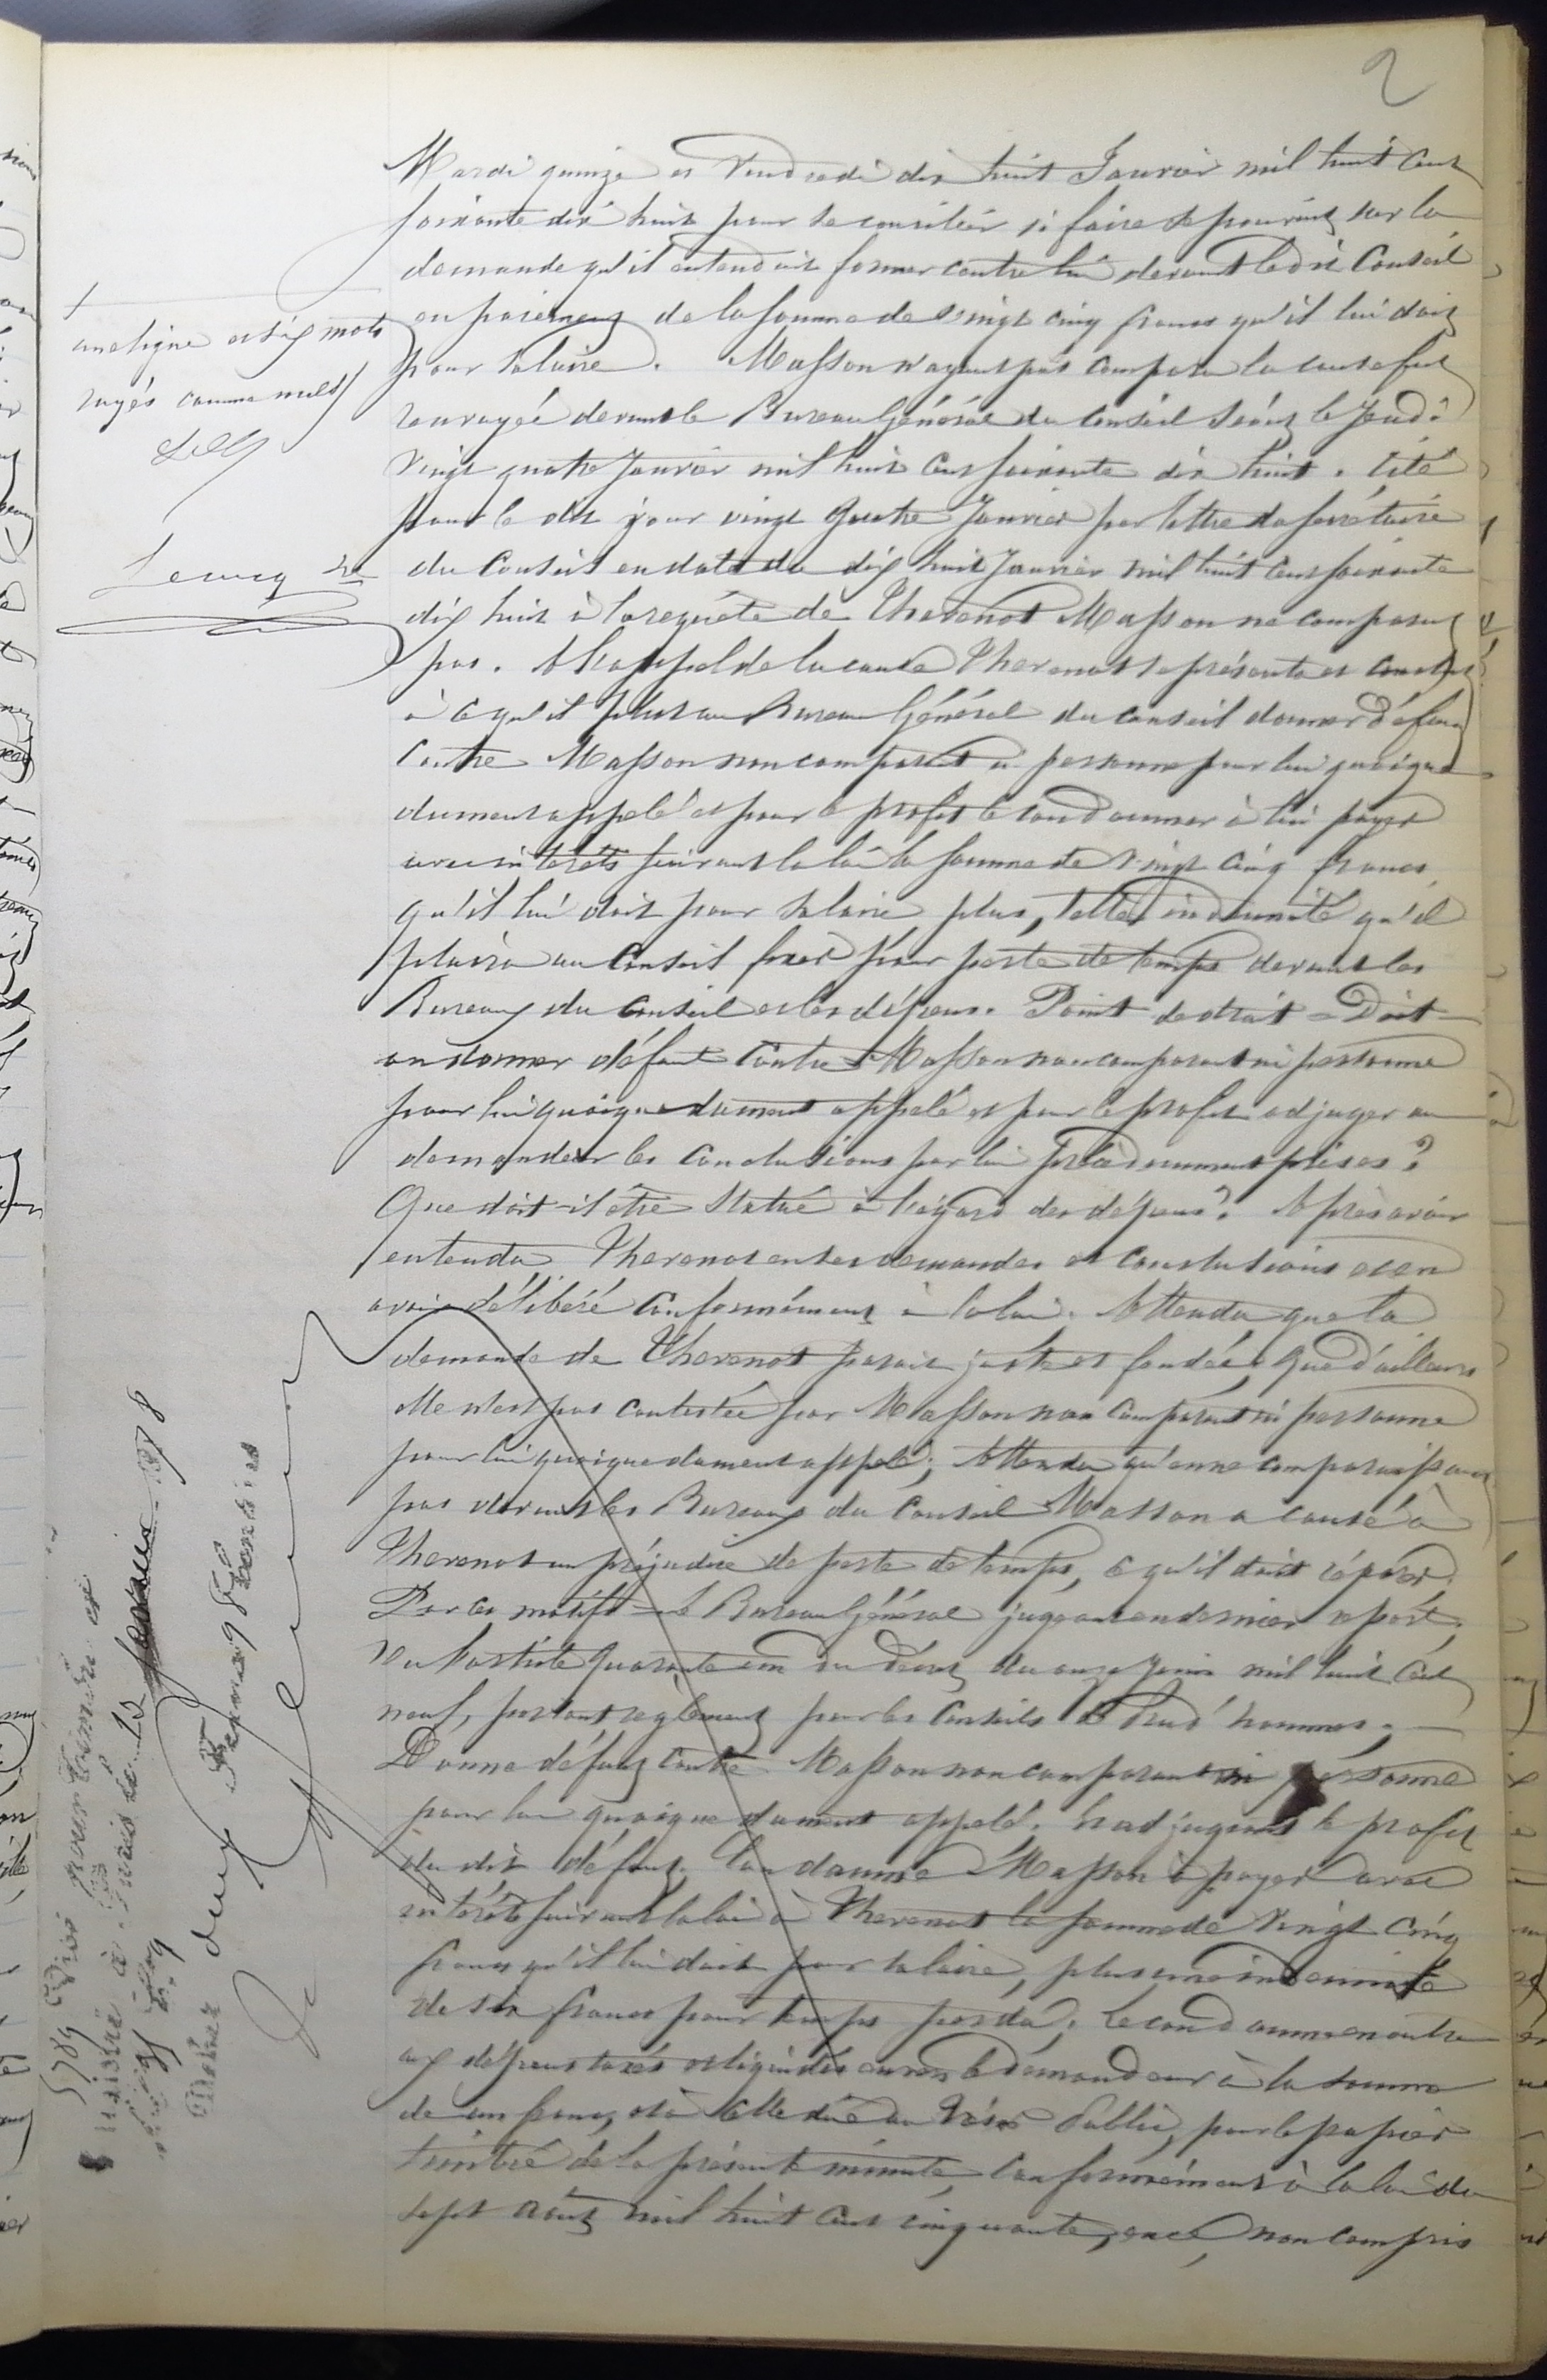 2
Mardi quinze et Vendredi dix huit Janvier mil huit cent
soixante dix huit pour se concilier si faire se pouvait sur la
demande qu'il entendait former contre lui devant le dit Conseil
en paiement de la somme de vingt cinq francs qu'il lui doit
pour salaire. Masson n'ayant pas comparu la cause fut
renvoyée devant le Bureau Général du Conseil séant le Jeudi
vingt quatre Janvier mil huit cent soixante dix huit. Cité
pour le dit jour vingt quatre Janvier par lettre du secrétaire
du Conseil en date du dix huit Janvier mil huit cent soixante
dix huit à la requête de Thevenot Masson ne comparut
pas. A l'appel de la cause Thevenot se présenta et conclut
à ce qu'il plut au Bureau Général du conseil donner défaut
contre Masson non comparant ni personne pour lui quoique
dument appelé et pour le profit le condamner à lui payer
avec intérêts suivant la loi la somme de vingt cinq francs
qu'il lui doit pour salaire, plus, telle indemnité qu'il
plaira au Conseil fixer pour perte de temps devant les
Bureaux du Conseil et les dépens. Point de droit = Doit-
on donner défaut contre Masson non comparant ni personne
pour lui quoique dument appelé et pour le profit adjuger au
demandeur les conclusions par lui précédemment prises ?
Que doit-il être statué à l'égard des dépens ? Après avoir
entendu Thevenot en ses demandes et conclusions et en
avoir délibéré conformément à la loi. Attendu que la
demande de Thevenot parait juste et fondée; Que d'ailleurs
elle n'est pas contestée par Masson non comparant ni personne
pour lui quoique dument appelé; Attendu qu'en ne comparaissant
pas devant les Bureaux du Conseil Masson a causé à
Thevenot un préjudice de perte de temps, ce qu'il doit réparer.
Par ces motifs = Le Bureau Général jugeant en dernier ressort;
Vu l'article quarante un du décret du onze Juin mil huit cent
neuf, portant règlement pour les Conseils de Prud'hommes; —
Donne défaut contre Masson non comparant ni personne
pour lui quoique dument appelé. Et adjugeant le profit
du dit défaut. Condamne Masson à payer avec
intérêts suivant la loi à Thevenot la somme de vingt cinq
francs qu'il lui doit pour salaire, plus une indemnité
de six francs pour temps perdu. Le condamne en outre
aux dépens taxés et liquidés envers le demandeur à la somme
de un franc, et à celle due au Trésor Public, pour le papier
timbré de la présente minute, conformément à la loi du
sept Août mil huit cent cinquante, ence, non compris
une ligne et six mots
rayés comme nuls
Lecucq
1878
deux francs